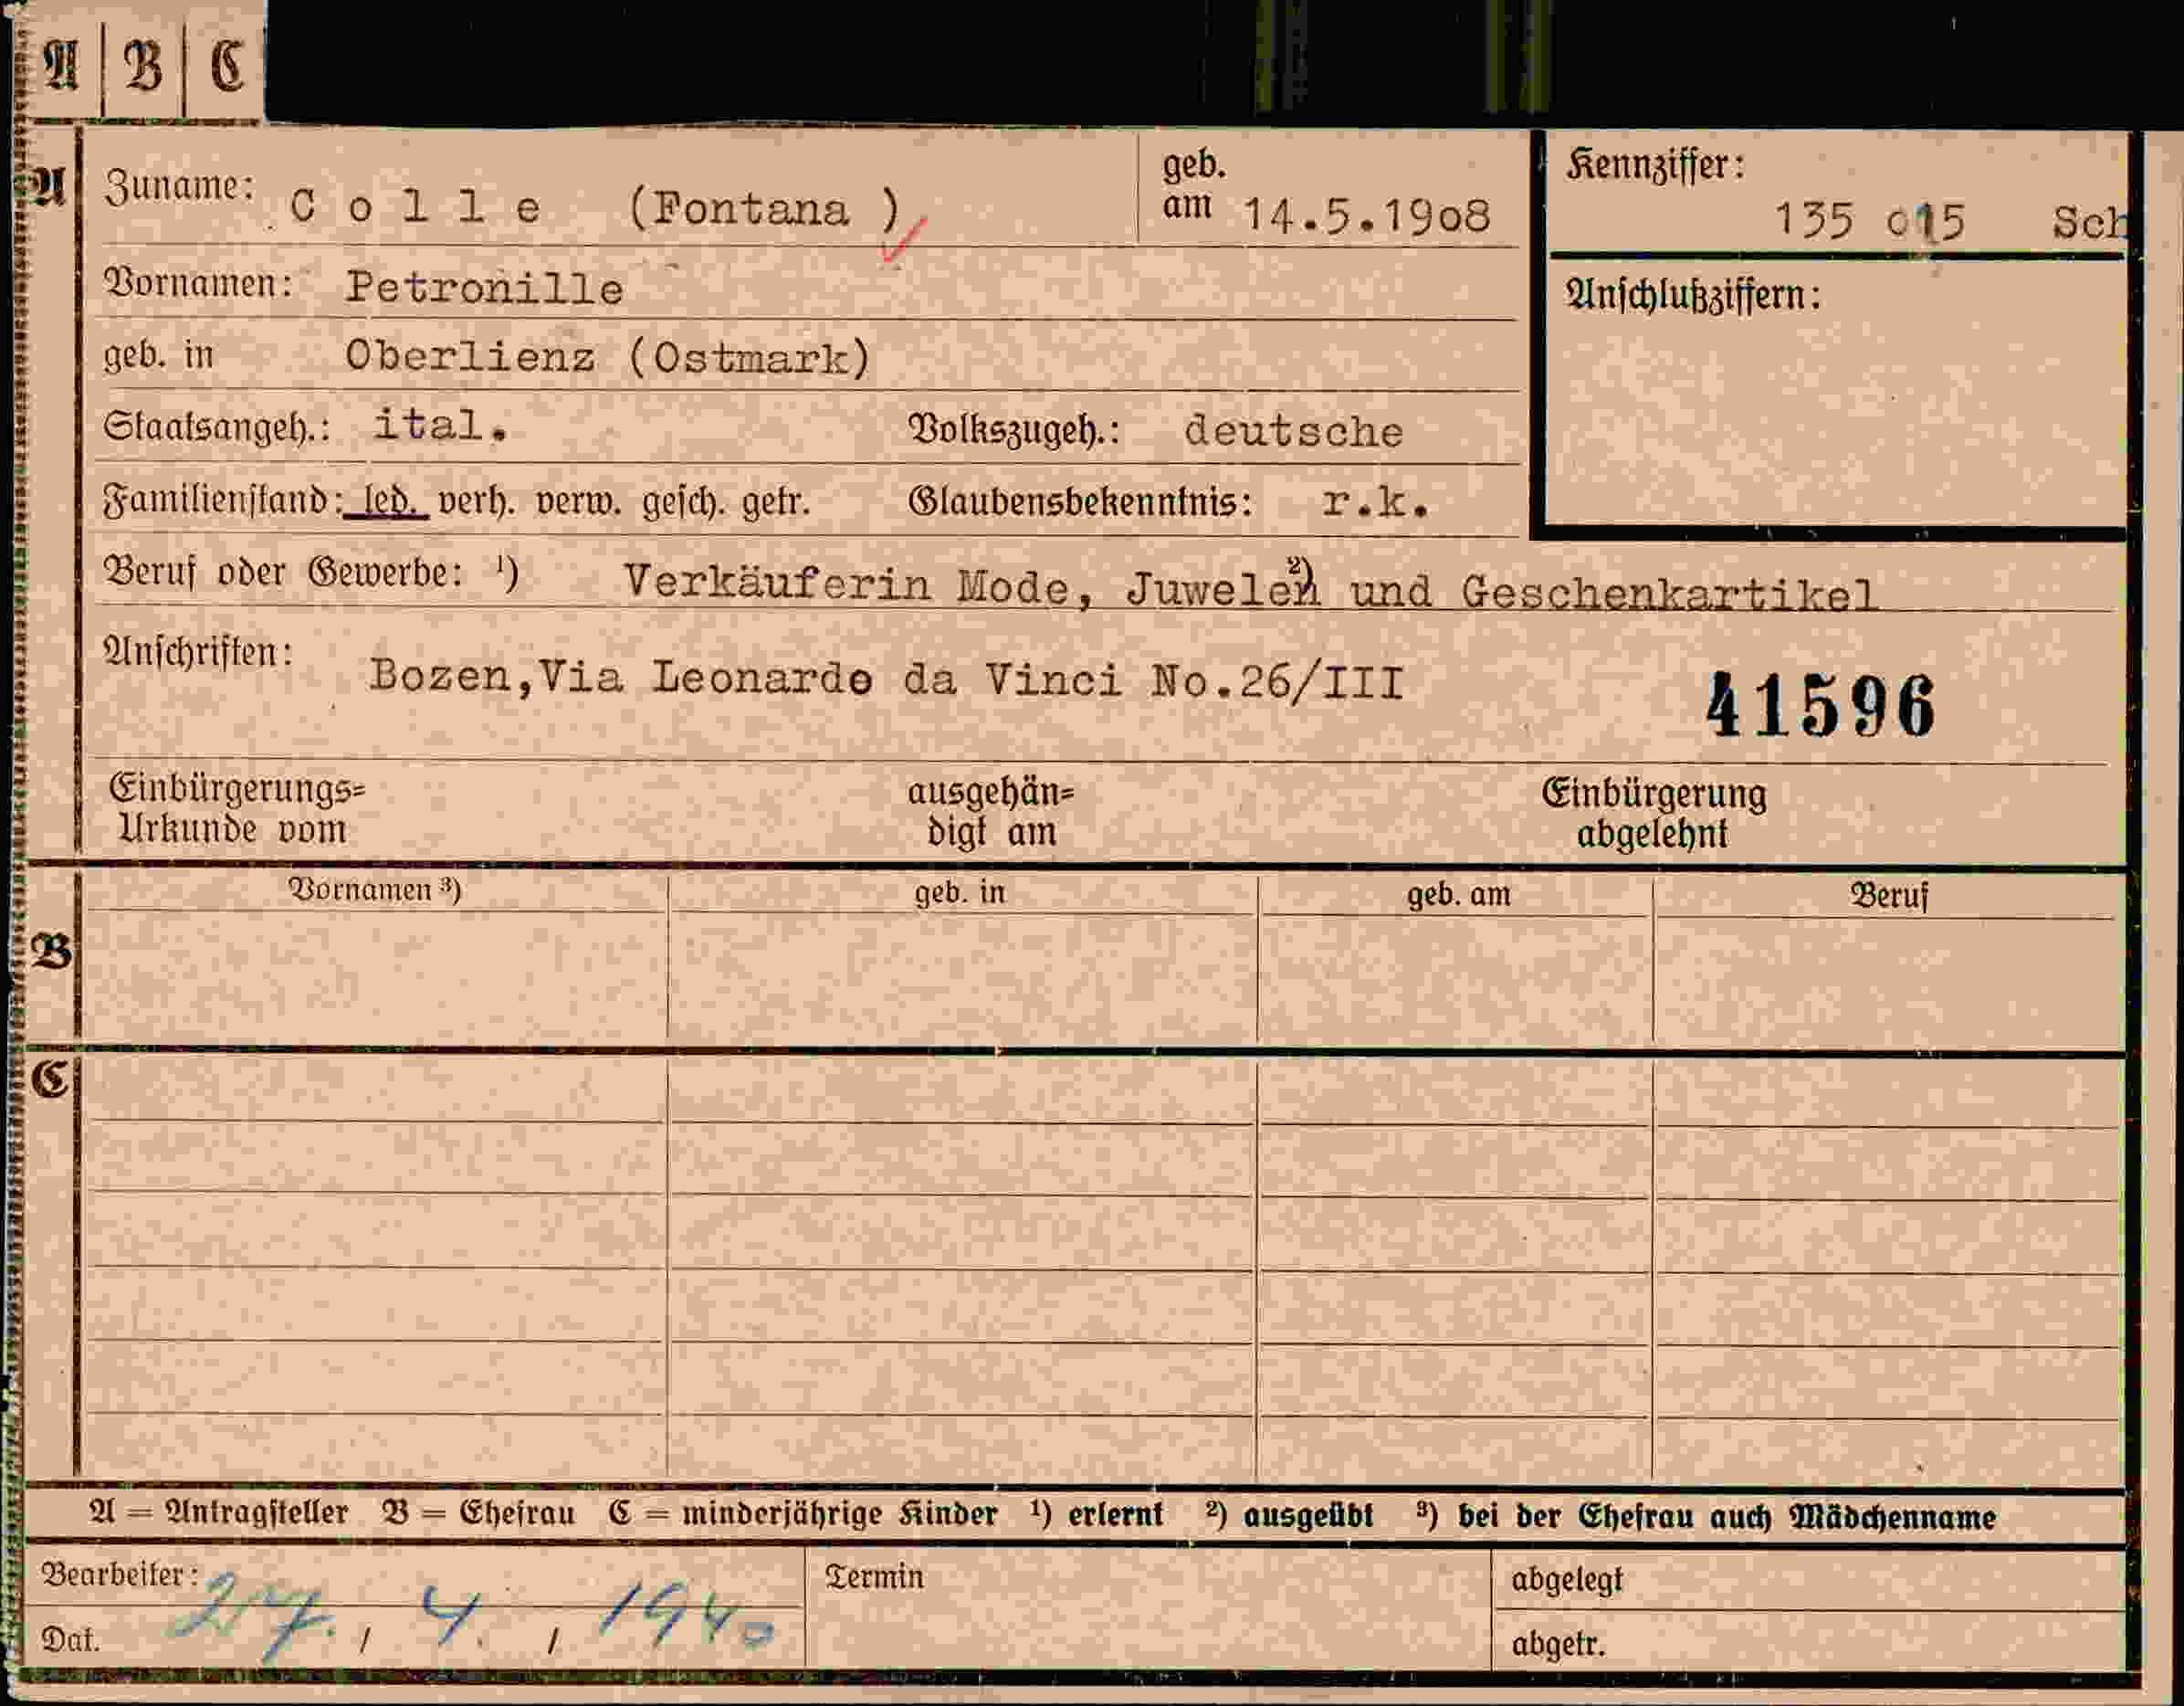 A | B | C
A Zuname: C o l l e (Fontana ) geb. am 14.5.19o8 Kennziffer: 135 o15 Sch
Vornamen: Petronille Anschlußziffern:
geb. in Oberlienz (Ostmark)
Staatsangeh.: ital. Volkszugeh.: deutsche
Familienstand: led. verh. verw. gesch. getr. Glaubensbekenntnis: r.k.
Beruf oder Gewerbe: ¹) Verkäuferin Mode, Juwelen ²) und Geschenkartikel
Anschriften: Bozen,Via Leonardo da Vinci No.26/III
41596
Einbürgerungs= ausgehän= Einbürgerung
Urkunde vom digt am abgelehnt
Vornamen ³) geb. in geb. am Beruf
B
C
A = Antragsteller B = Ehefrau C = minderjährige Kinder ¹) erlernt ²) ausgeübt ³) bei der Ehefrau auch Mädchenname
Bearbeiter: Termin abgelegt
Dat. 27. / 4. / 1940 abgetr.